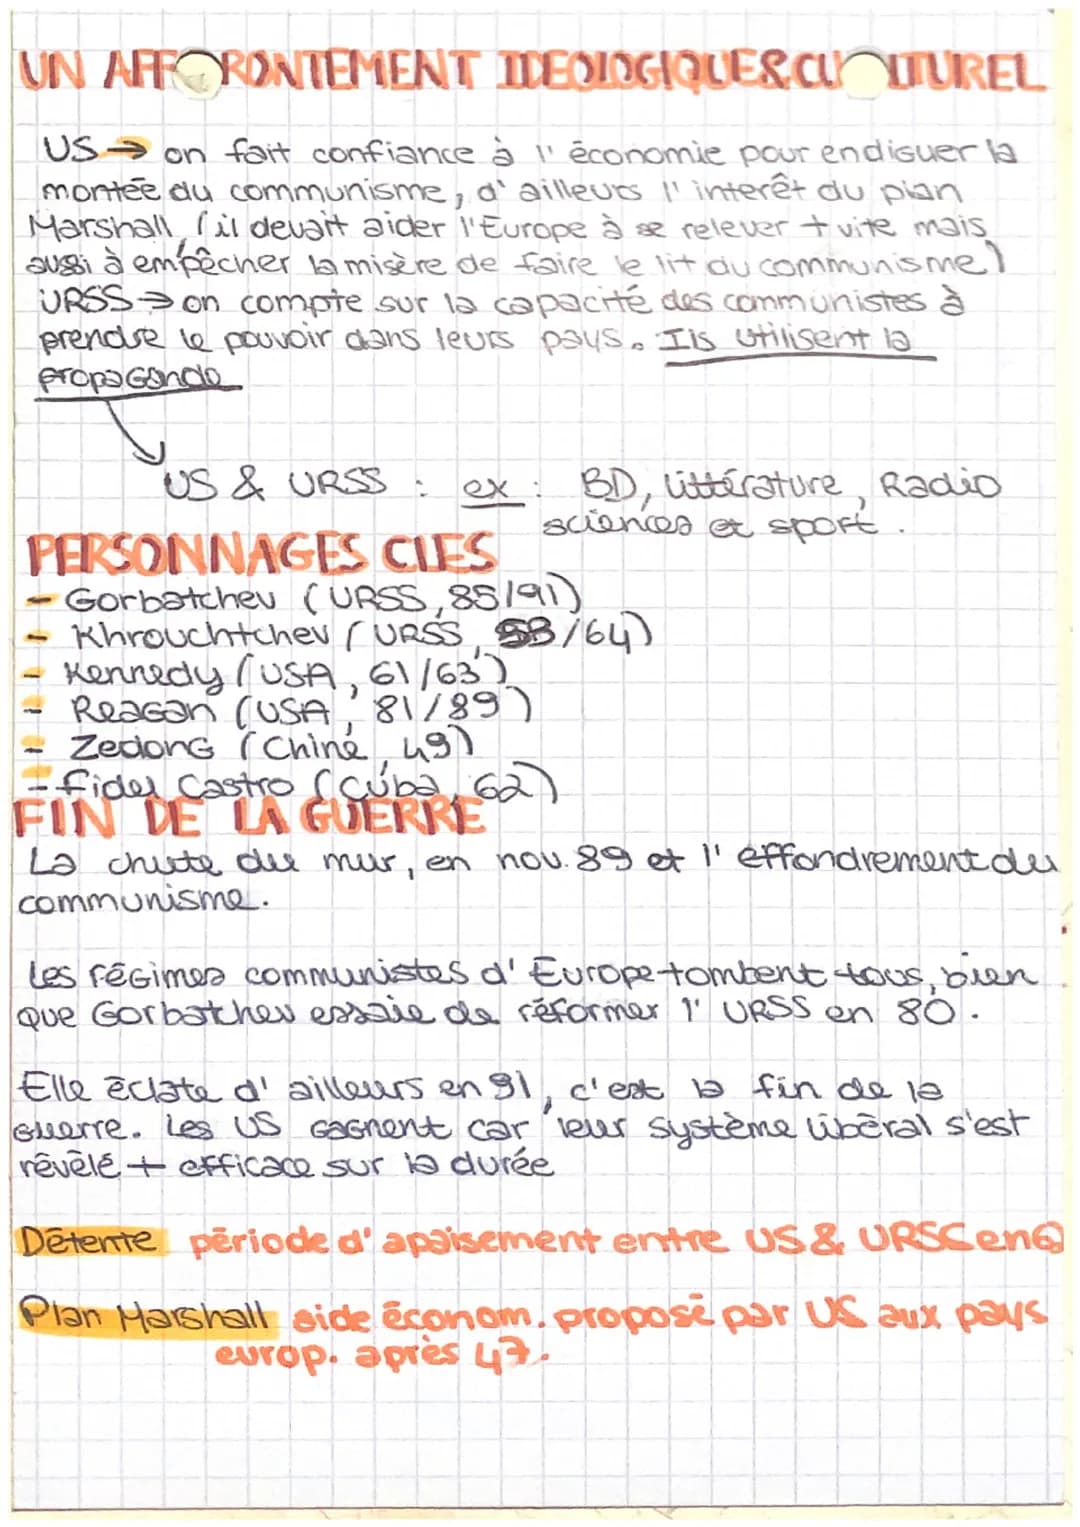 UN AFFRONTEMENT IDEOLOGIQUE & CULTUREL
US → on fait confiance à l' économie pour endiguer la
montée du communisme, d' ailleurs l' interêt du plan
Marshall (il devait aider l'Europe à se relever + vite mais
aussi à empêcher la misère de faire le lit du communisme)
URSS → on compte sur la capacité des communistes à
prendre le pouvoir dans leurs pays. Ils utilisent la
propagande
US & URSS : ex : BD, littérature, Radio
sciences et sport.
PERSONNAGES CLES
- Gorbatchev (URSS, 85/91)
- Khrouchtchev (URSS, 53/64)
- Kennedy (USA, 61/63)
- Reagan (USA, 81/89)
- Zedong (Chine, 49)
- Fidel Castro (Cuba, 62)
FIN DE LA GUERRE
La chute du mur, en nov. 89 et l' effondrement du
communisme.
Les régimes communistes d' Europe tombent tous, bien
que Gorbatchev essaie de réformer l' URSS en 80.
Elle éclate d' ailleurs en 91, c'est la fin de la
guerre. Les US gagnent car leur système libéral s'est
révélé + efficace sur la durée
Détente période d' apaisement entre US & URSS en
Plan Marshall aide économ. proposé par US aux pays
europ. après 47.